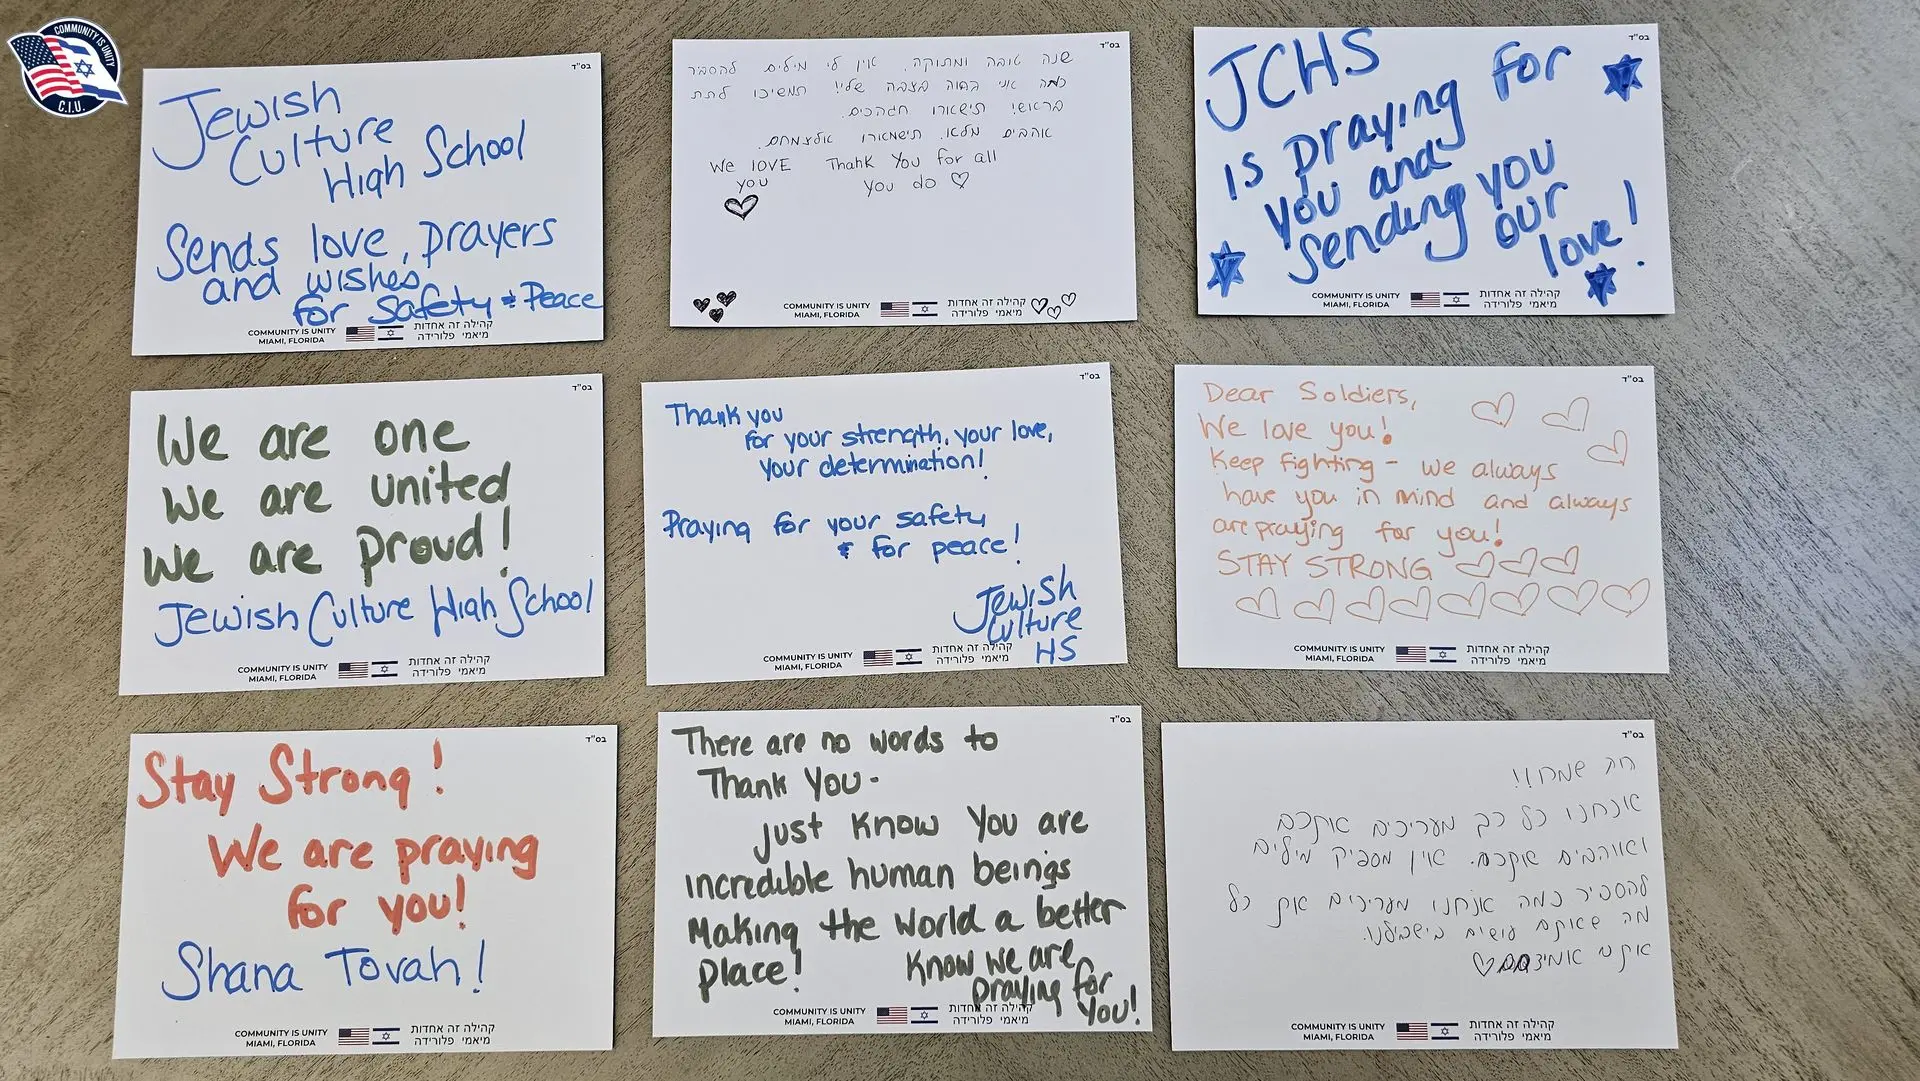 COMMUNITY IS UNITY
C.I.U.
בס"ד
Jewish
Culture
High School
Sends love, prayers
and wishes
for safety & Peace
COMMUNITY IS UNITY
MIAMI, FLORIDA
קהילה זה אחדות
מיאמי פלורידה
בס"ד
שנה טובה ומתוקה. אין לי מילים להסביר
כמה אני בצבה שלי! תמשיכו לתת
בראש! תישארו
אוהבים מלא. תישמארו
We love
you
Thank you for all
you do
COMMUNITY IS UNITY
MIAMI, FLORIDA
קהילה זה אחדות
מיאמי פלורידה
בס"ד
JCHS
is praying for
you and
sending you
our
love!
COMMUNITY IS UNITY
MIAMI, FLORIDA
קהילה זה אחדות
מיאמי פלורידה
בס"ד
We are one
We are united
We are proud!
Jewish Culture High School
COMMUNITY IS UNITY
MIAMI, FLORIDA
קהילה זה אחדות
מיאמי פלורידה
בס"ד
Thank you
for your strength, your love,
your determination!
Praying for your safety
& for peace!
Jewish
Culture
HS
COMMUNITY IS UNITY
MIAMI, FLORIDA
קהילה זה אחדות
מיאמי פלורידה
בס"ד
Dear Soldiers,
We love you!
Keep fighting - we always
have you in mind and always
are praying for you!
STAY STRONG
COMMUNITY IS UNITY
MIAMI, FLORIDA
קהילה זה אחדות
מיאמי פלורידה
בס"ד
Stay Strong!
We are praying
for you!
Shana Tovah!
COMMUNITY IS UNITY
MIAMI, FLORIDA
קהילה זה אחדות
מיאמי פלורידה
בס"ד
There are no words to
Thank You-
Just know You are
incredible human beings
Making the world a better
Place!
Know we are
praying for
You!
COMMUNITY IS UNITY
MIAMI, FLORIDA
קהילה זה אחדות
מיאמי פלורידה
בס"ד
אנחנו כל כך מעריכים אתכם
ואוהבים אתכם. אין מספיק מילים
להסביר כמה אנחנו מעריכים את כל
מה שאתם עושים בישבילנו.
COMMUNITY IS UNITY
MIAMI, FLORIDA
קהילה זה אחדות
מיאמי פלורידה